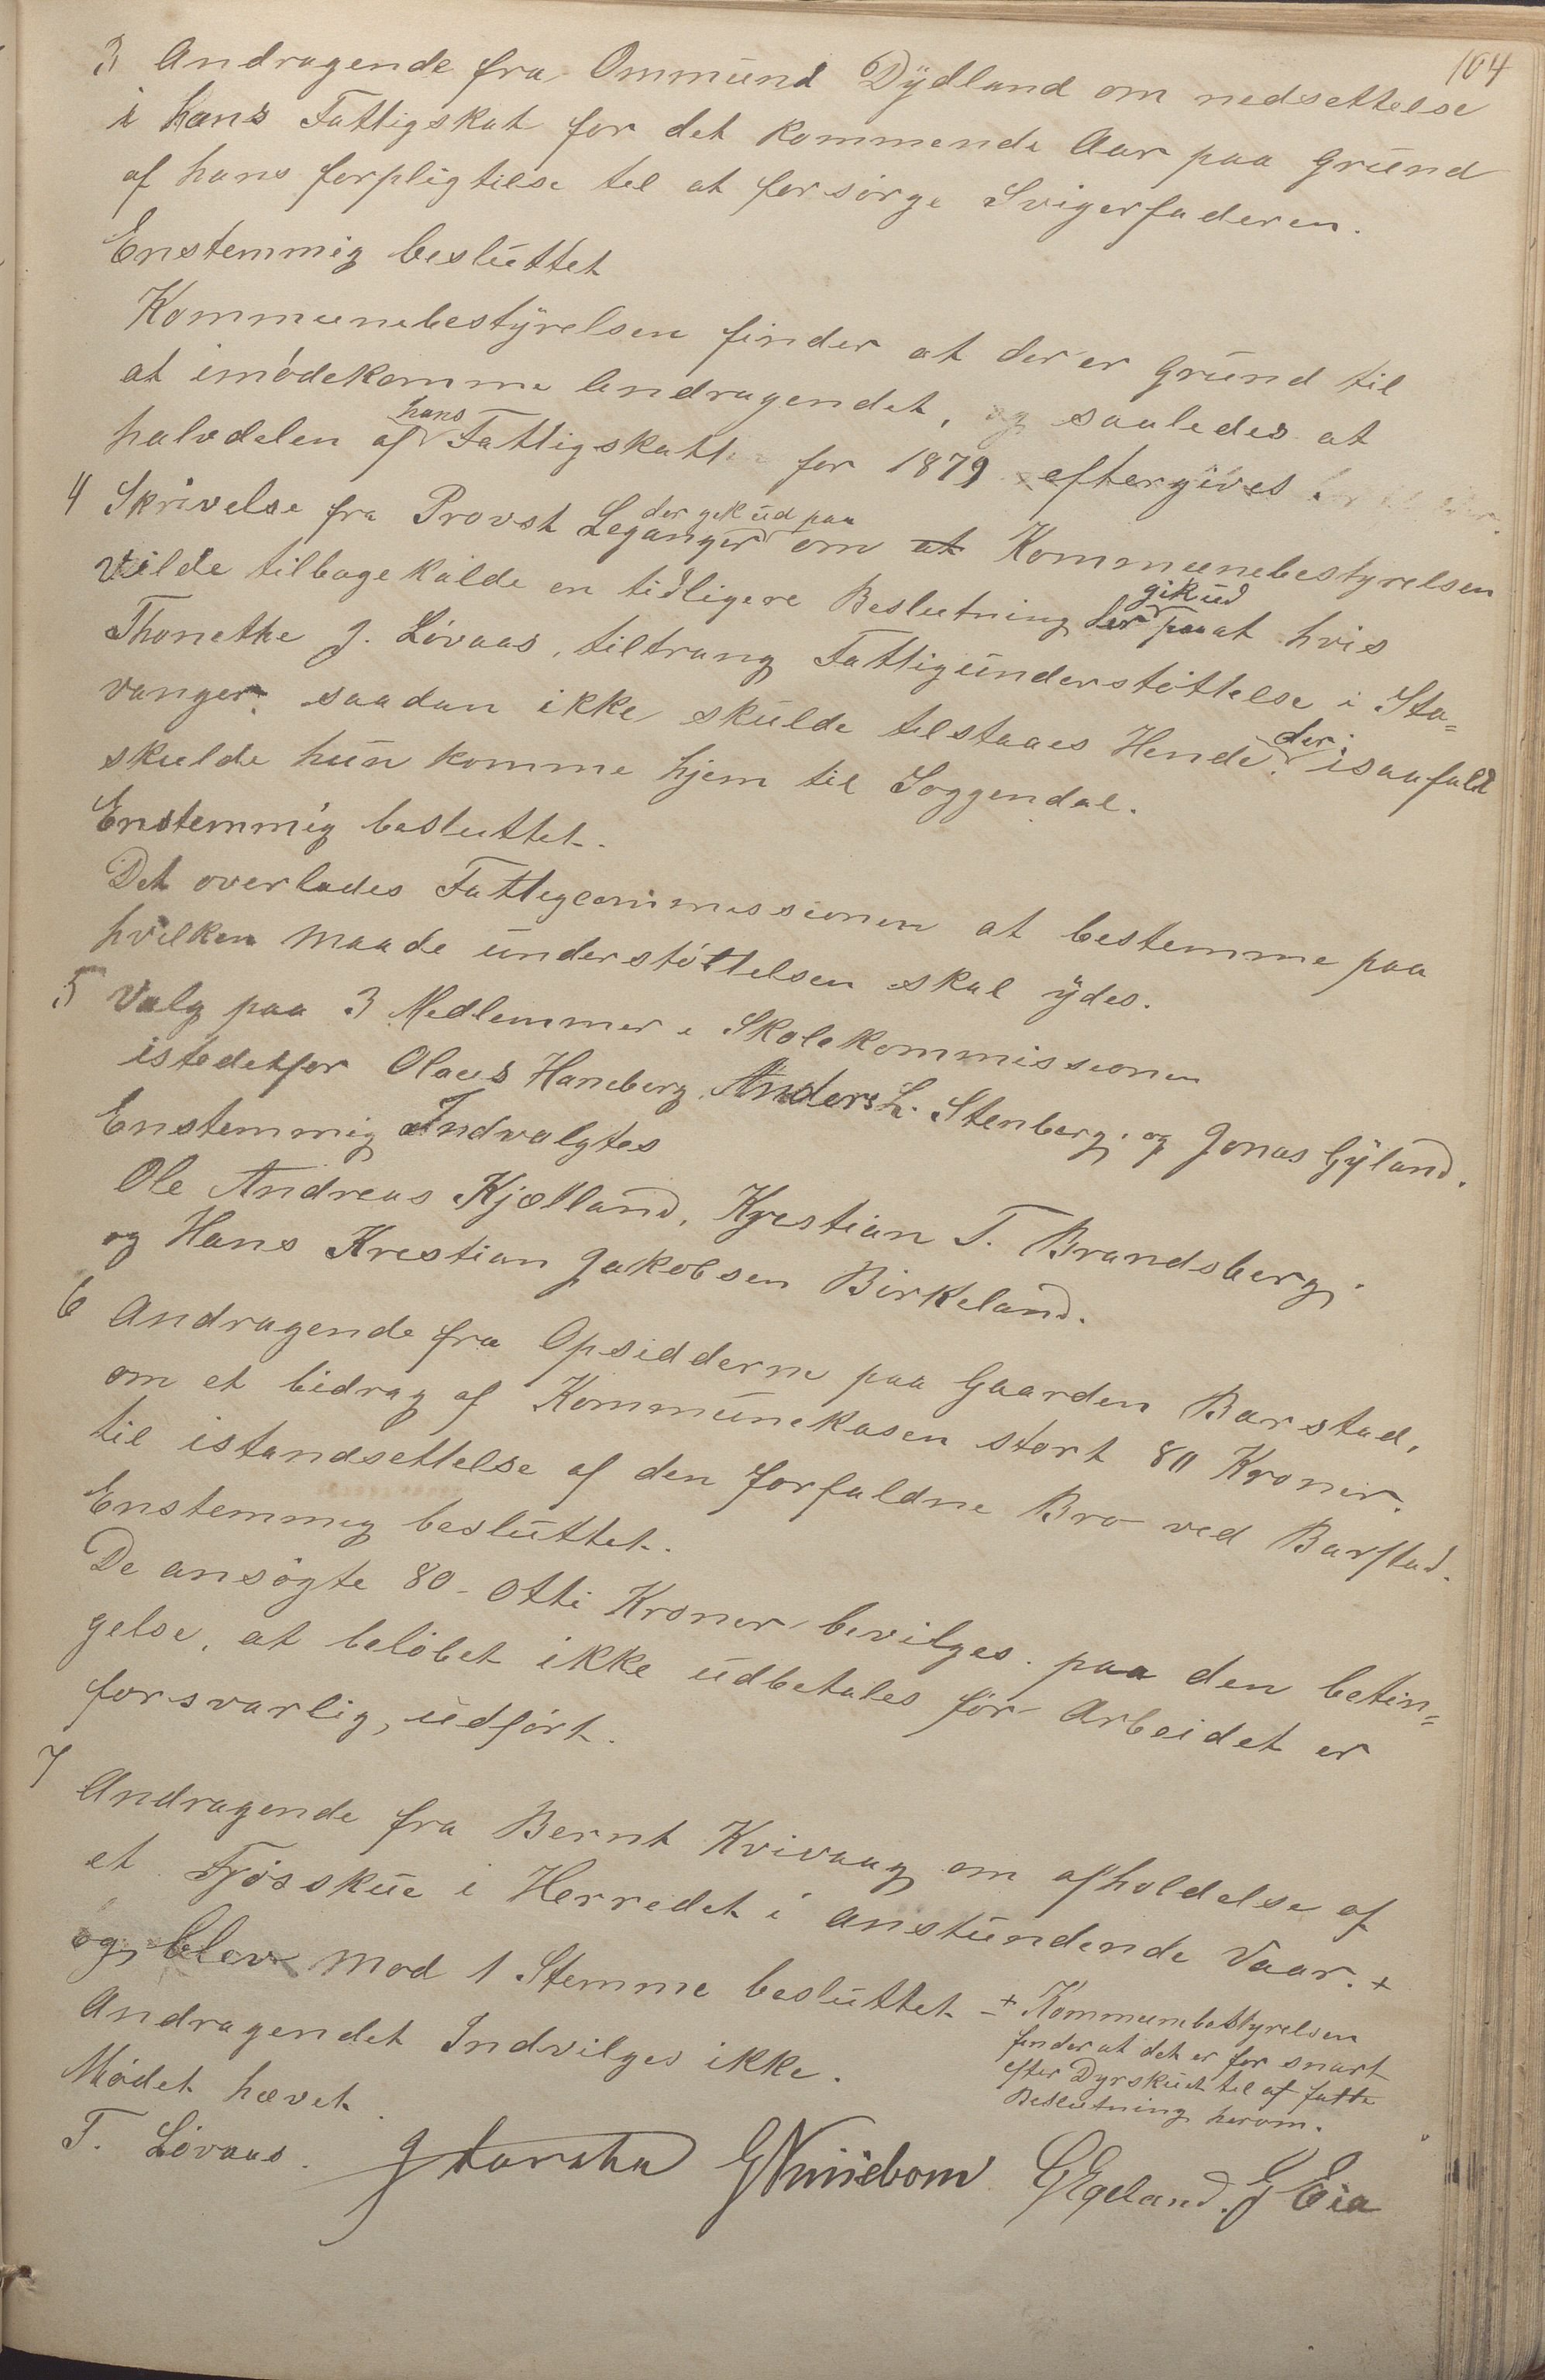 104
3 Andragende fra Ommund Dÿdland om nedsettelse
i hans Fattigskat for det kommende Aar paa Grund
af hans forpligtelse til at forsörge Svigerfaderen.
Enstemmig besluttet
Kommunebestÿrelsen finder at der er Grund til
at imödekomme Andragendet, og saaledes at
halvdelen af hans Fattigskatt for 1879 eftergives
4 Skrivelse fra Provst Leganger der gik ud paa om at Kommunebestyrelsen
vilde tilbagekalde en tidligere Beslutning der gik ud paa at hvis
Thonethe J. Lövaas, tiltrang Fattigunderstöttelse i Sta=
vanger, saadan ikke skulde tilstaaes Hende der, isaafald
skulde hun komme hjem til Soggendal.
Enstemmig besluttet.
Det overlades Fattigcommissionen at bestemme paa
hvilken Maade understöttelsen skal ÿdes.
5 Valg paa 3 Medlemmer i Skolekommissionen
istedetfor Olaus Haneberg, Anders L. Stenberg, og Jonas Gÿland.
Enstemmig Indvalgtes
Ole Andreas Kjelland, Krestian T. Brandsberg,
og Hans Krestian Jakobsen Birkeland.
6 Andragende fra Opsidderne paa Gaarden Barstad,
om et bidrag af Kommunekasen stort 80 Kroner.
til istandsettelse af den forfaldne Bro ved Barstad.
Enstemmig besluttet.
De ansögte 80 - Otti Kroner bevilges. paa den betin=
gelse, at belöbet ikke udbetales för Arbeidet er
forsvarlig, udfört.
7
Andragende fra Bernt Kvivaag om afholdelse af
et Fjösskue i Herredet i anstundende Vaar. +
og blev mod 1 Stemme besluttet
Andragendet Indvilges ikke.
+ Kommunbestyrelsen
finder at det er for snart
efter Dyrskuet til at fatte
Beslutning herom.
Mödet hævet
T. Lövaas. G Nuüebom G Egeland. G Eia